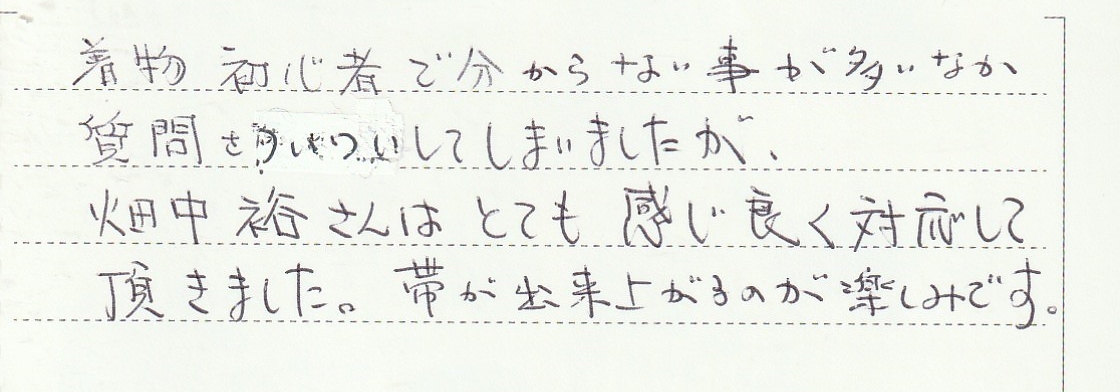 着物初心者で分からない事が多いなか
質問をしてしまいましたが、
畑中裕さんはとても感じ良く対応して
頂きました。帯が出来上がるのが楽しみです。